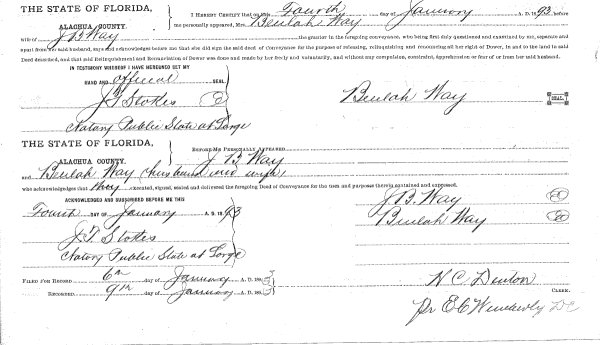 THE STATE OF FLORIDA,
ALACHUA COUNTY.
I HEREBY CERTIFY that on this Fourth day of January A. D. 1893 before
me personally appeared, Mrs. Beulah Way
wife of J B Way the grantor in the foregoing conveyance, who being first duly questioned and examined by me, separate and
apart from her said husband, says and acknowledges before me that she did sign the said deed of Conveyance for the purpose of releasing, relinquishing and renouncing all her right of Dower, in and to the land in said
Deed described, and that said Relinquishment and Renunciation of Dower was done and made by her freely and voluntarily, and without any compulsion, constraint, apprehension or fear of or from her said husband.
IN TESTIMONY WHEREOF I HAVE HEREUNTO SET MY
HAND AND official SEAL
J. T. Stokes
Beulah Way SEAL.
Notary Public State at Large
THE STATE OF FLORIDA,
ALACHUA COUNTY.
BEFORE ME PERSONALLY APPEARED
J B. Way
and Beulah Way (husband and wife)
who acknowledges that they executed, signed, sealed and delivered the foregoing Deed of Conveyance for the uses and purposes therein contained and expressed.
ACKNOWLEDGED AND SUBSCRIBED BEFORE ME THIS
J. B. Way
Fourth DAY OF January A. D. 1893
Beulah Way
J. T. Stokes
Notary Public State at Large
FILED FOR RECORD 6th day of January A. D. 1893
RECORDED 9th day of January A. D. 1893
N C Denton
CLERK.
Pr E C Wimberly DC